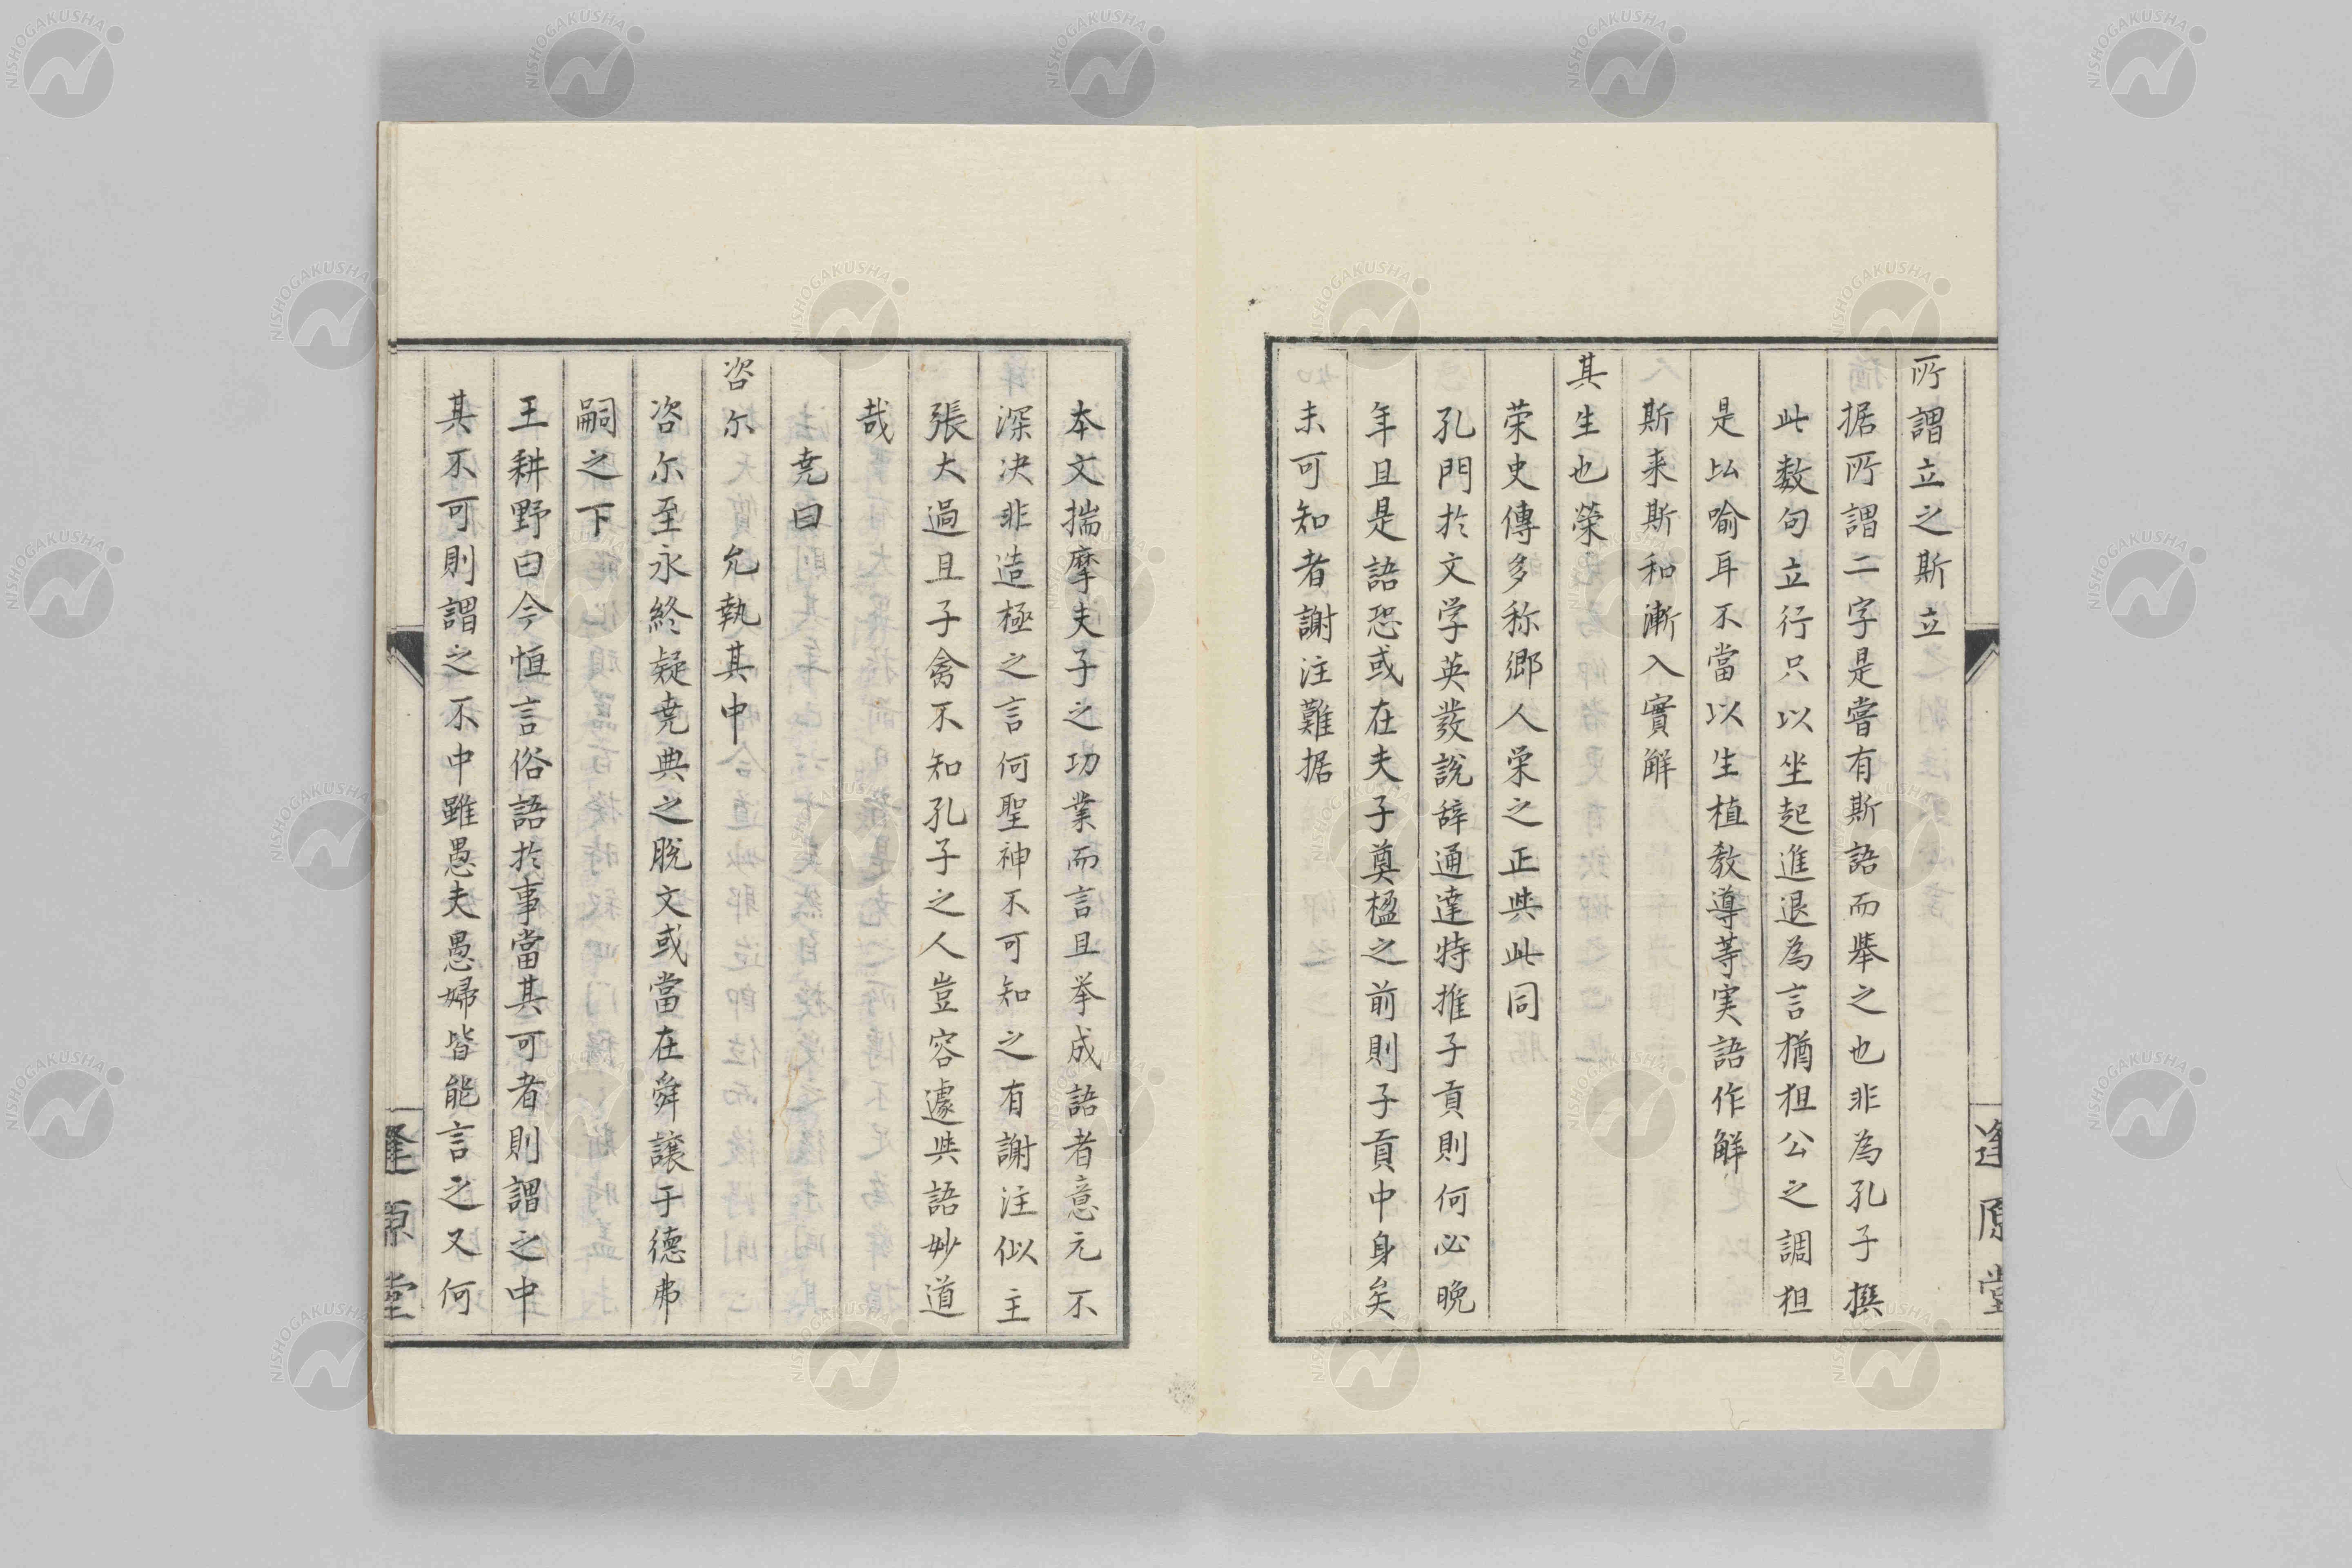 所謂立之斯立
据所謂二字是嘗有斯語而舉之也非為孔子撰
此数句立行只以坐起進退為言猶狙公之調狙
是以喻耳不當以生植教導等実語作解
斯来斯和漸入實解
其生也榮
荣史傳多称郷人栄之正與此同
孔門於文学英發說辞通達特推子貢則何必晚
年且是語恐或在夫子奠楹之前則子貢中身矣
未可知者謝注難据
逢原堂
本文揣摩夫子之功業而言且挙成語者意元不
深決非造極之言何聖神不可知之有謝注似主
張大過且子禽不知孔子之人豈容遽與語妙道
哉
尭曰
咨尓 允執其中
咨尓至永終疑尭典之脫文或當在舜讓于德弗
嗣之下
王耕野曰今恒言俗語於事當其可者則謂之中
其不可則謂之不中雖愚夫愚婦皆能言之又何
逢原堂
NISHOGAKUSHA